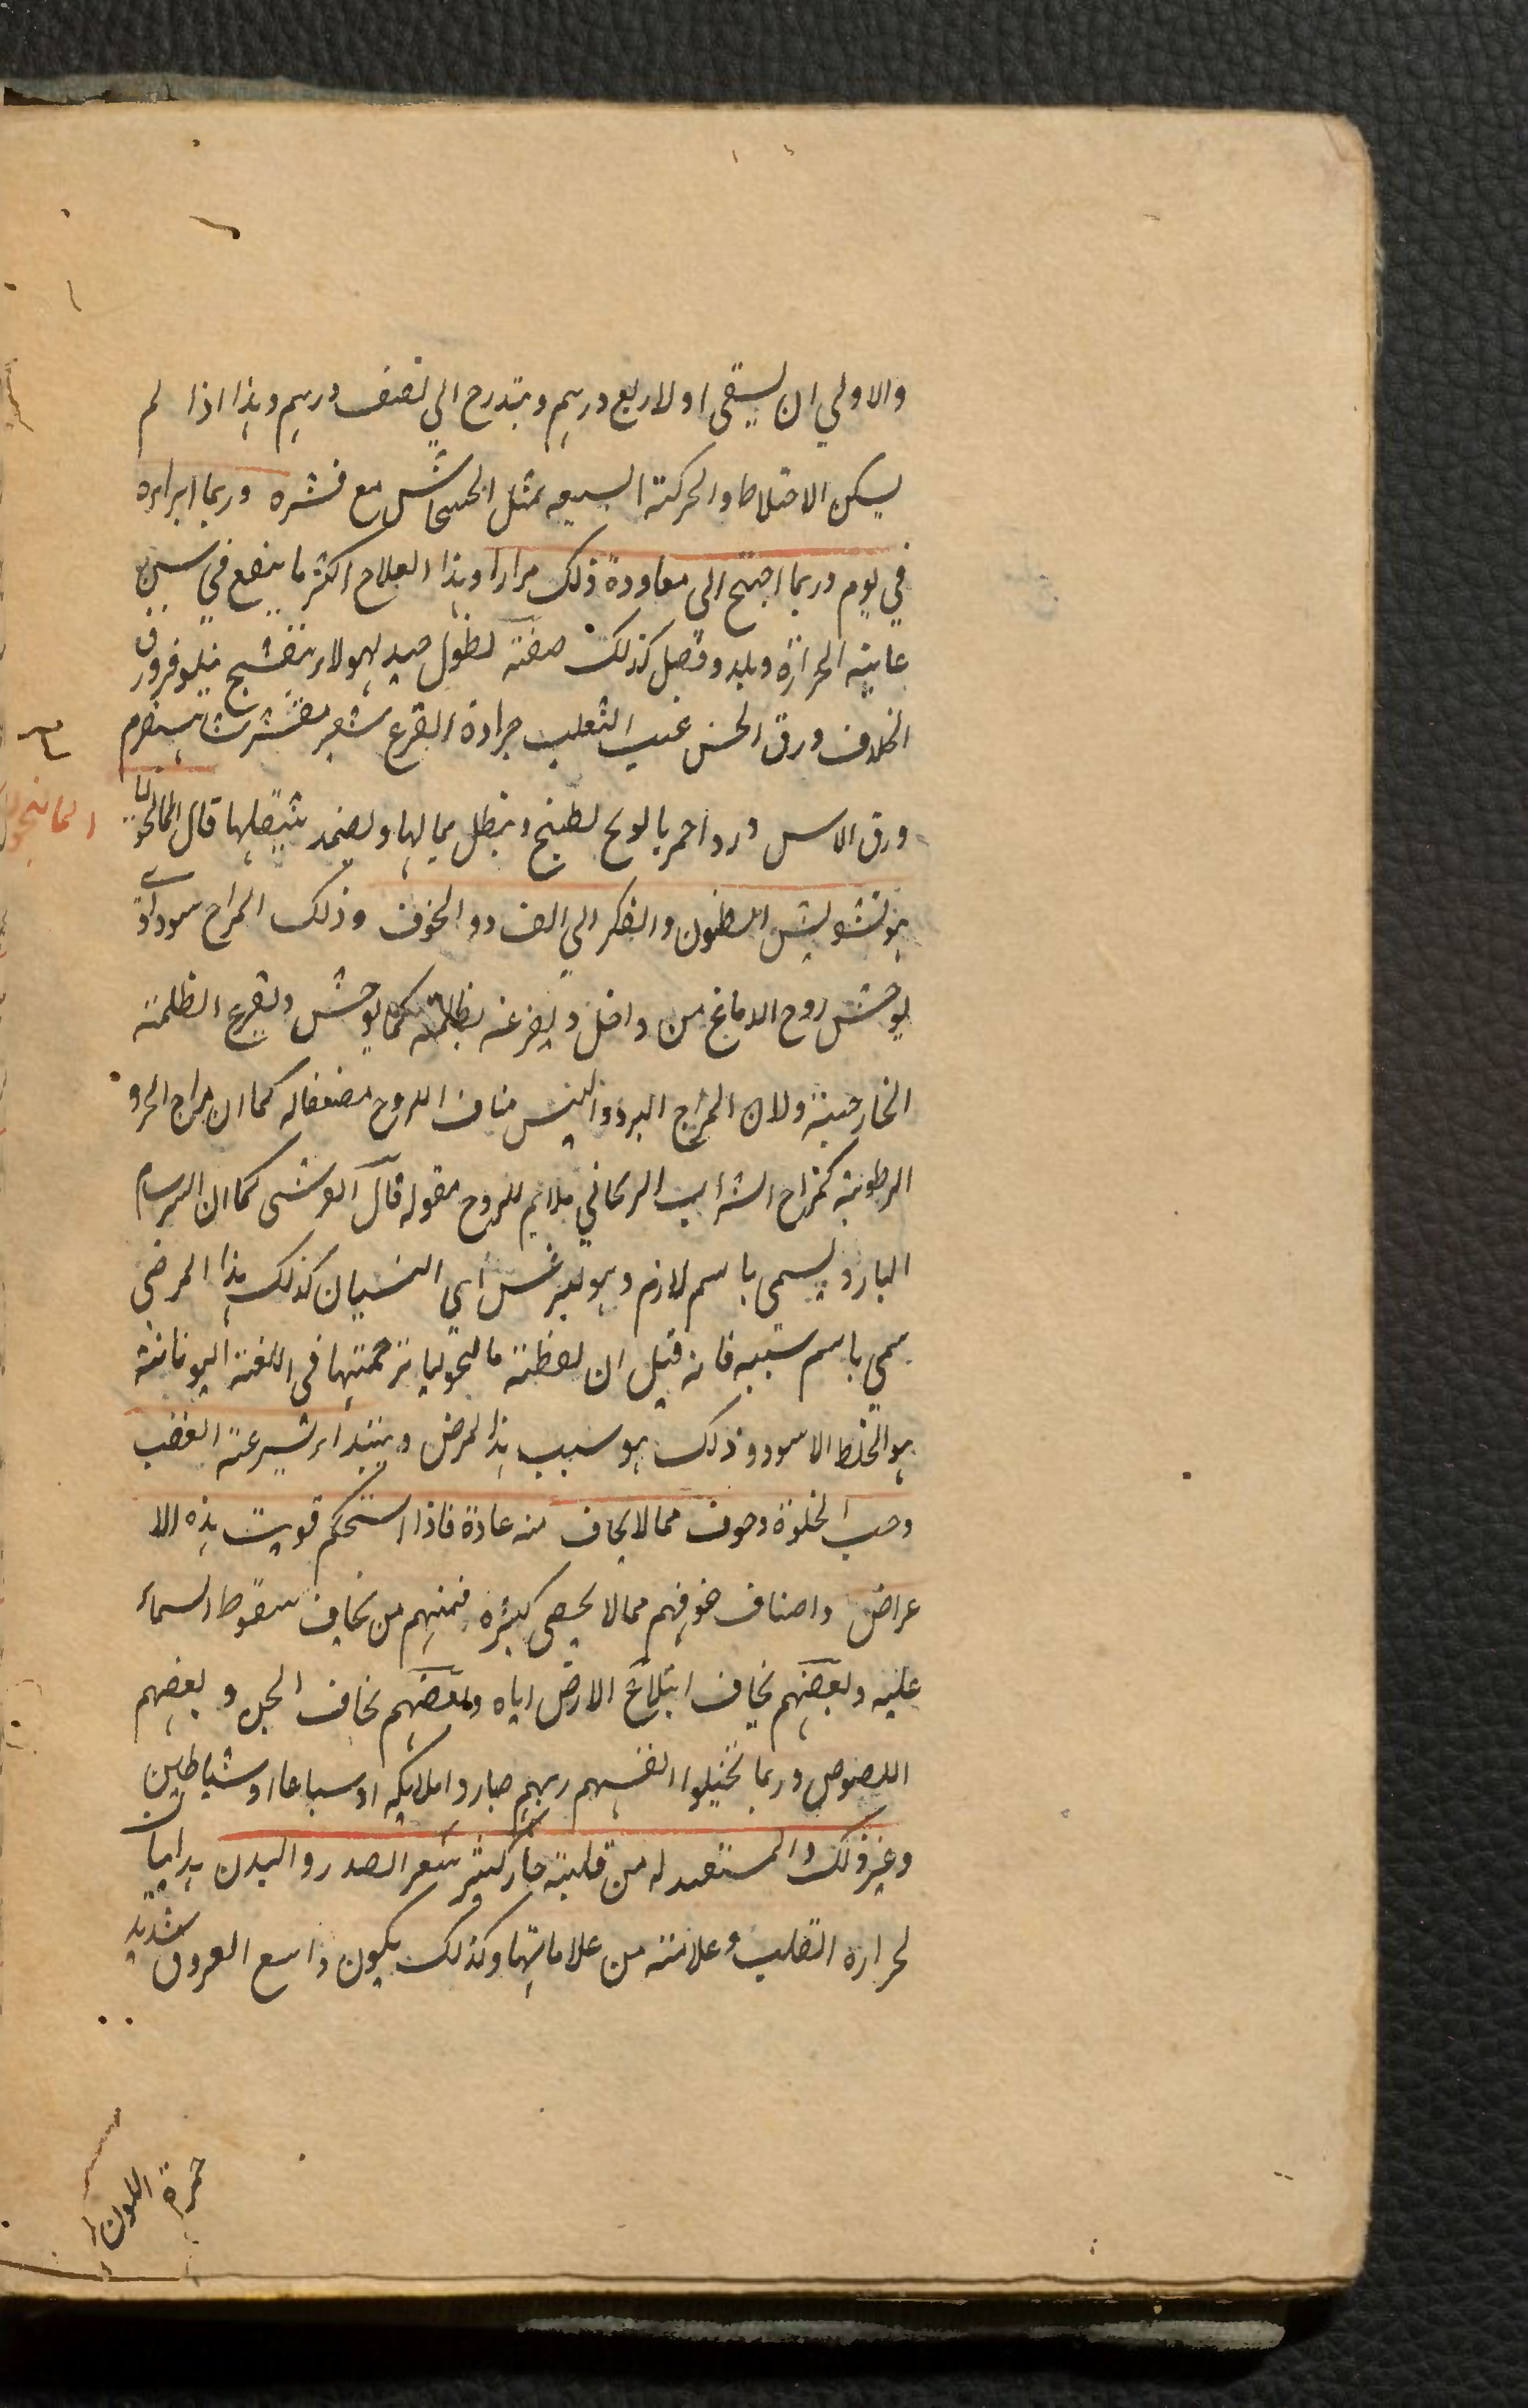 والاولي ان يسقي اولا ربع درهم ويتدرج الي نصف درهم وهذا اذا لم
يسكن الاختلاط والحركة السبعيه بمثل الخشخاش مع قشره وربما ابرارہ
في يوم وربما احتيج الي معاودة ذلك مرارا وهذا العلاج اكثر ما ينفع في سن
غاية الحرارة وبلد وفصل كذلك صفة نطول جيد لهولاء بنفسج نيلوفر ورق
الخلاف ورق الخس عنب الثعلب جرادة القرع شعير مقشر شاهسفرم
ورق الاس ورد احمر بابونج يطبخ وينطل بمائها ويضمد بثفلها قال المالنخوليا
هو تشويش الظنون والفكر الي الفساد والخوف وذلك المزاج سوداوي
يوحش روح الدماغ من داخل ويفزعه بظلمته كما يوحش ويفزع الظلمة
الخارجية ولان المزاج البرد واليبس مناف للروح مضعف له كما ان مزاج الحر و
الرطوبة كمزاج الشراب الريحاني ملايم للروح مقوله قال القرشي كما ان السرسام
البارد يسمي باسم لازم وهو ليثرغس اي النسيان كذلك هذا المرض
سمي باسم سببه فانه قيل ان لفظة مالنخوليا ترجمتها في اللغة اليونانية
هو الخلط الاسود وذلك هو سبب هذا المرض ويبتدا بسرعة الغضب
وحب الخلوة وخوف مما لا يخاف منه عادة فاذا استحكم قويت هذه الا
عراض واصناف خوفهم مما لا يحصي كثره فمنهم من يخاف سقوط السماء
عليه وبعضهم يخاف ابتلاع الارض اياه وبعضهم يخاف الجن وبعضهم
اللصوص وربما تخيلوا انفسهم ربهم صاروا ملايكه او سباعا او شياطين
وغير ذلك والمستعد له من قلبه حار كثير شعر الصدر والبدن
لحرارة القلب وعلامته من علاماتها وكذلك يكون واسع العروق شديد
حمرة اللون
المالنخوليا